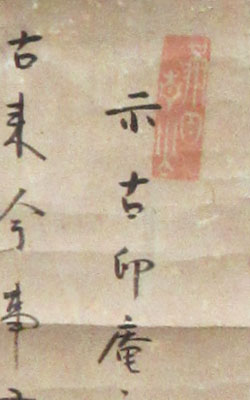 示古印庵
古来今事